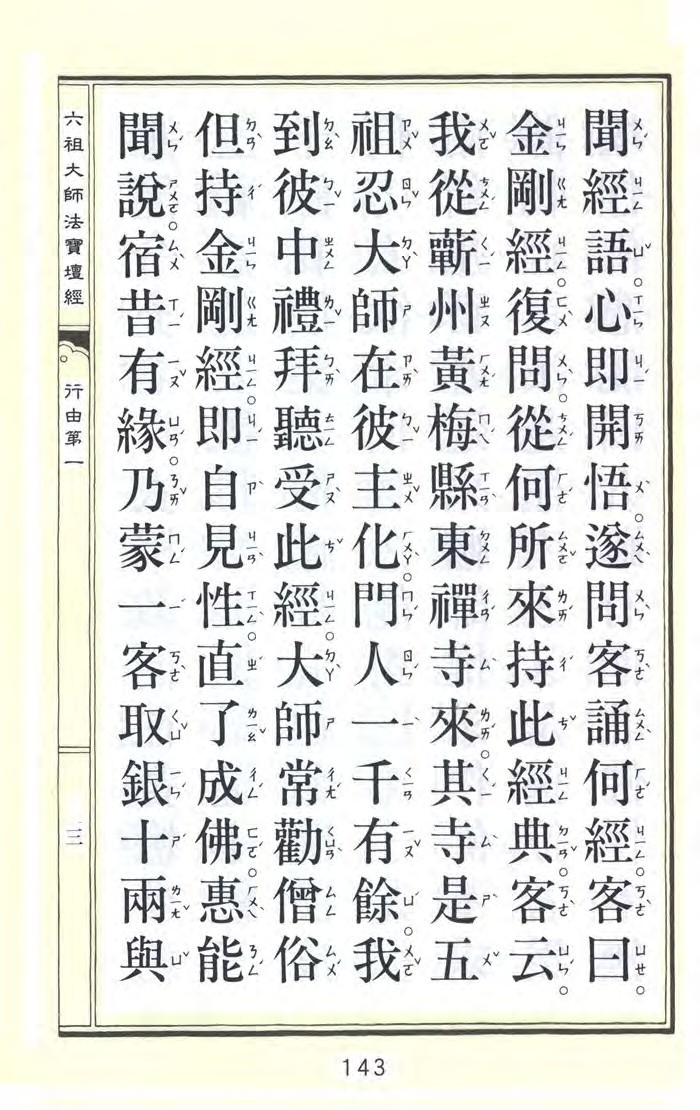 聞經語。心即開悟。遂問客誦何經。客曰。
金剛經。復問。從何所來。持此經典。客云。
我從蘄州黃梅縣東禪寺來。其寺是五
祖忍大師在彼主化。門人一千有餘。我
到彼中禮拜。聽受此經。大師常勸僧俗
但持金剛經。即自見性。直了成佛。惠能
聞說。宿昔有緣。乃蒙一客取銀十兩與
六祖大師法寶壇經
行由第一
三
143